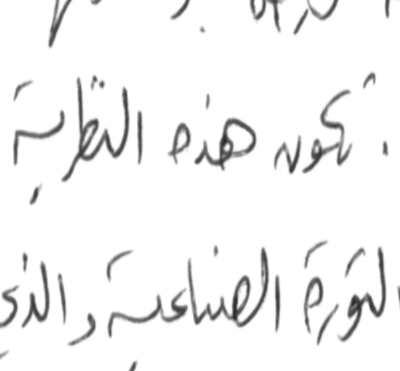 . تكون هذه النظرية
الثورة الصناعية والذي